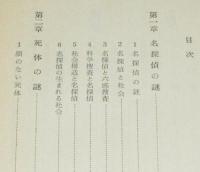 目次
第一章 名探偵の謎
1 名探偵の謎
2 名探偵と社会
3 名探偵と六感捜査
4 科学捜査と名探偵
5 社会構造と名探偵
6 名探偵の生まれる社会
第二章 死体の謎
1 顔のない死体